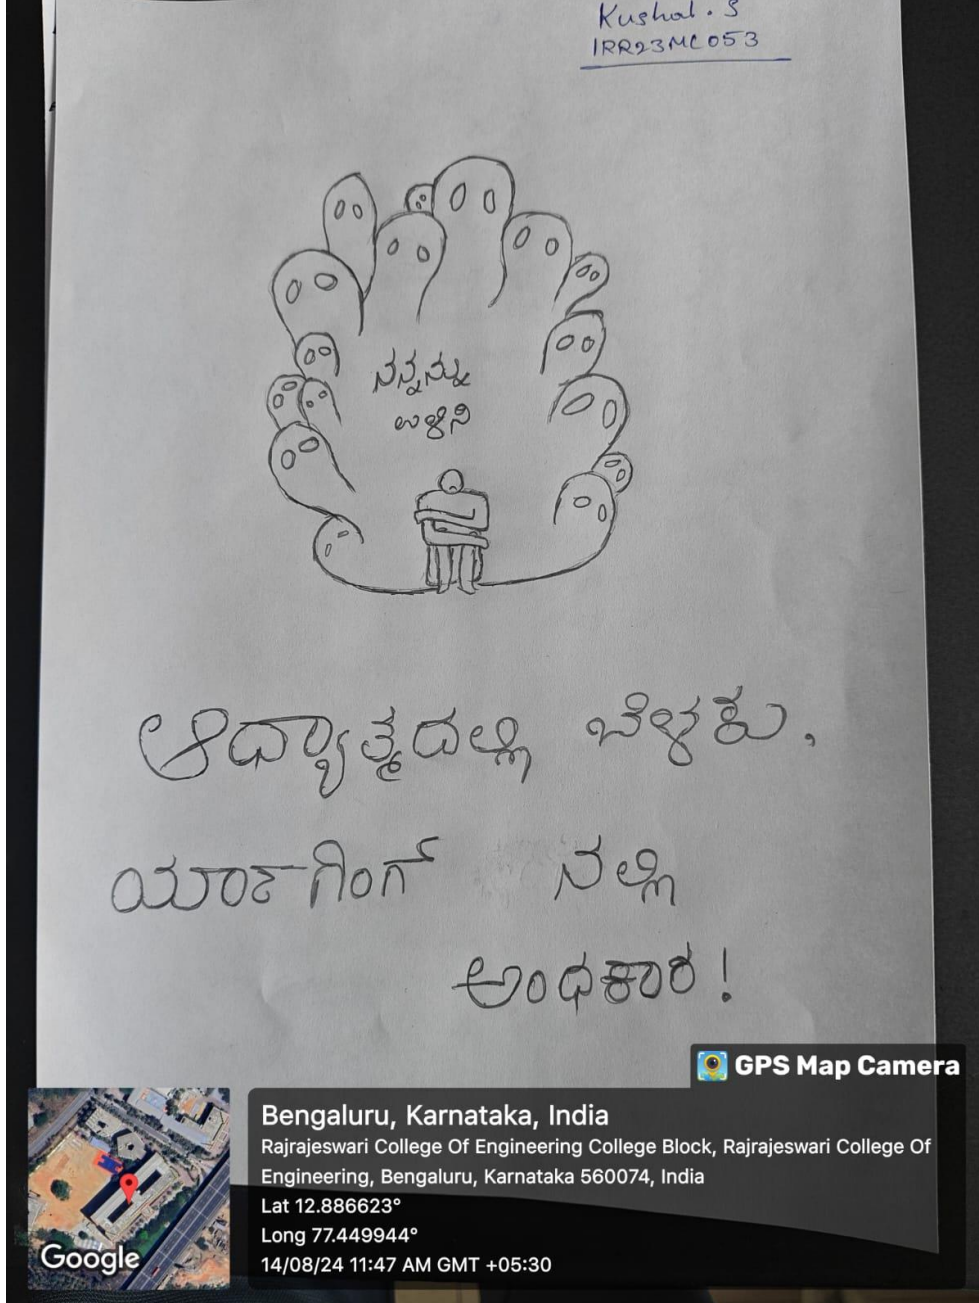 Kushal. S
1RR23MC053
ನನ್ನನ್ನು
ಉಳಿಸಿ
ಆಧ್ಯಾತ್ಮದಲ್ಲಿ ಬೆಳಕು,
ರ್ಯಾಗಿಂಗ್ ನಲ್ಲಿ
ಅಂಧಕಾರ!
GPS Map Camera
Bengaluru, Karnataka, India
Rajrajeswari College Of Engineering College Block, Rajrajeswari College Of
Engineering, Bengaluru, Karnataka 560074, India
Lat 12.886623°
Long 77.449944°
14/08/24 11:47 AM GMT +05:30
Google